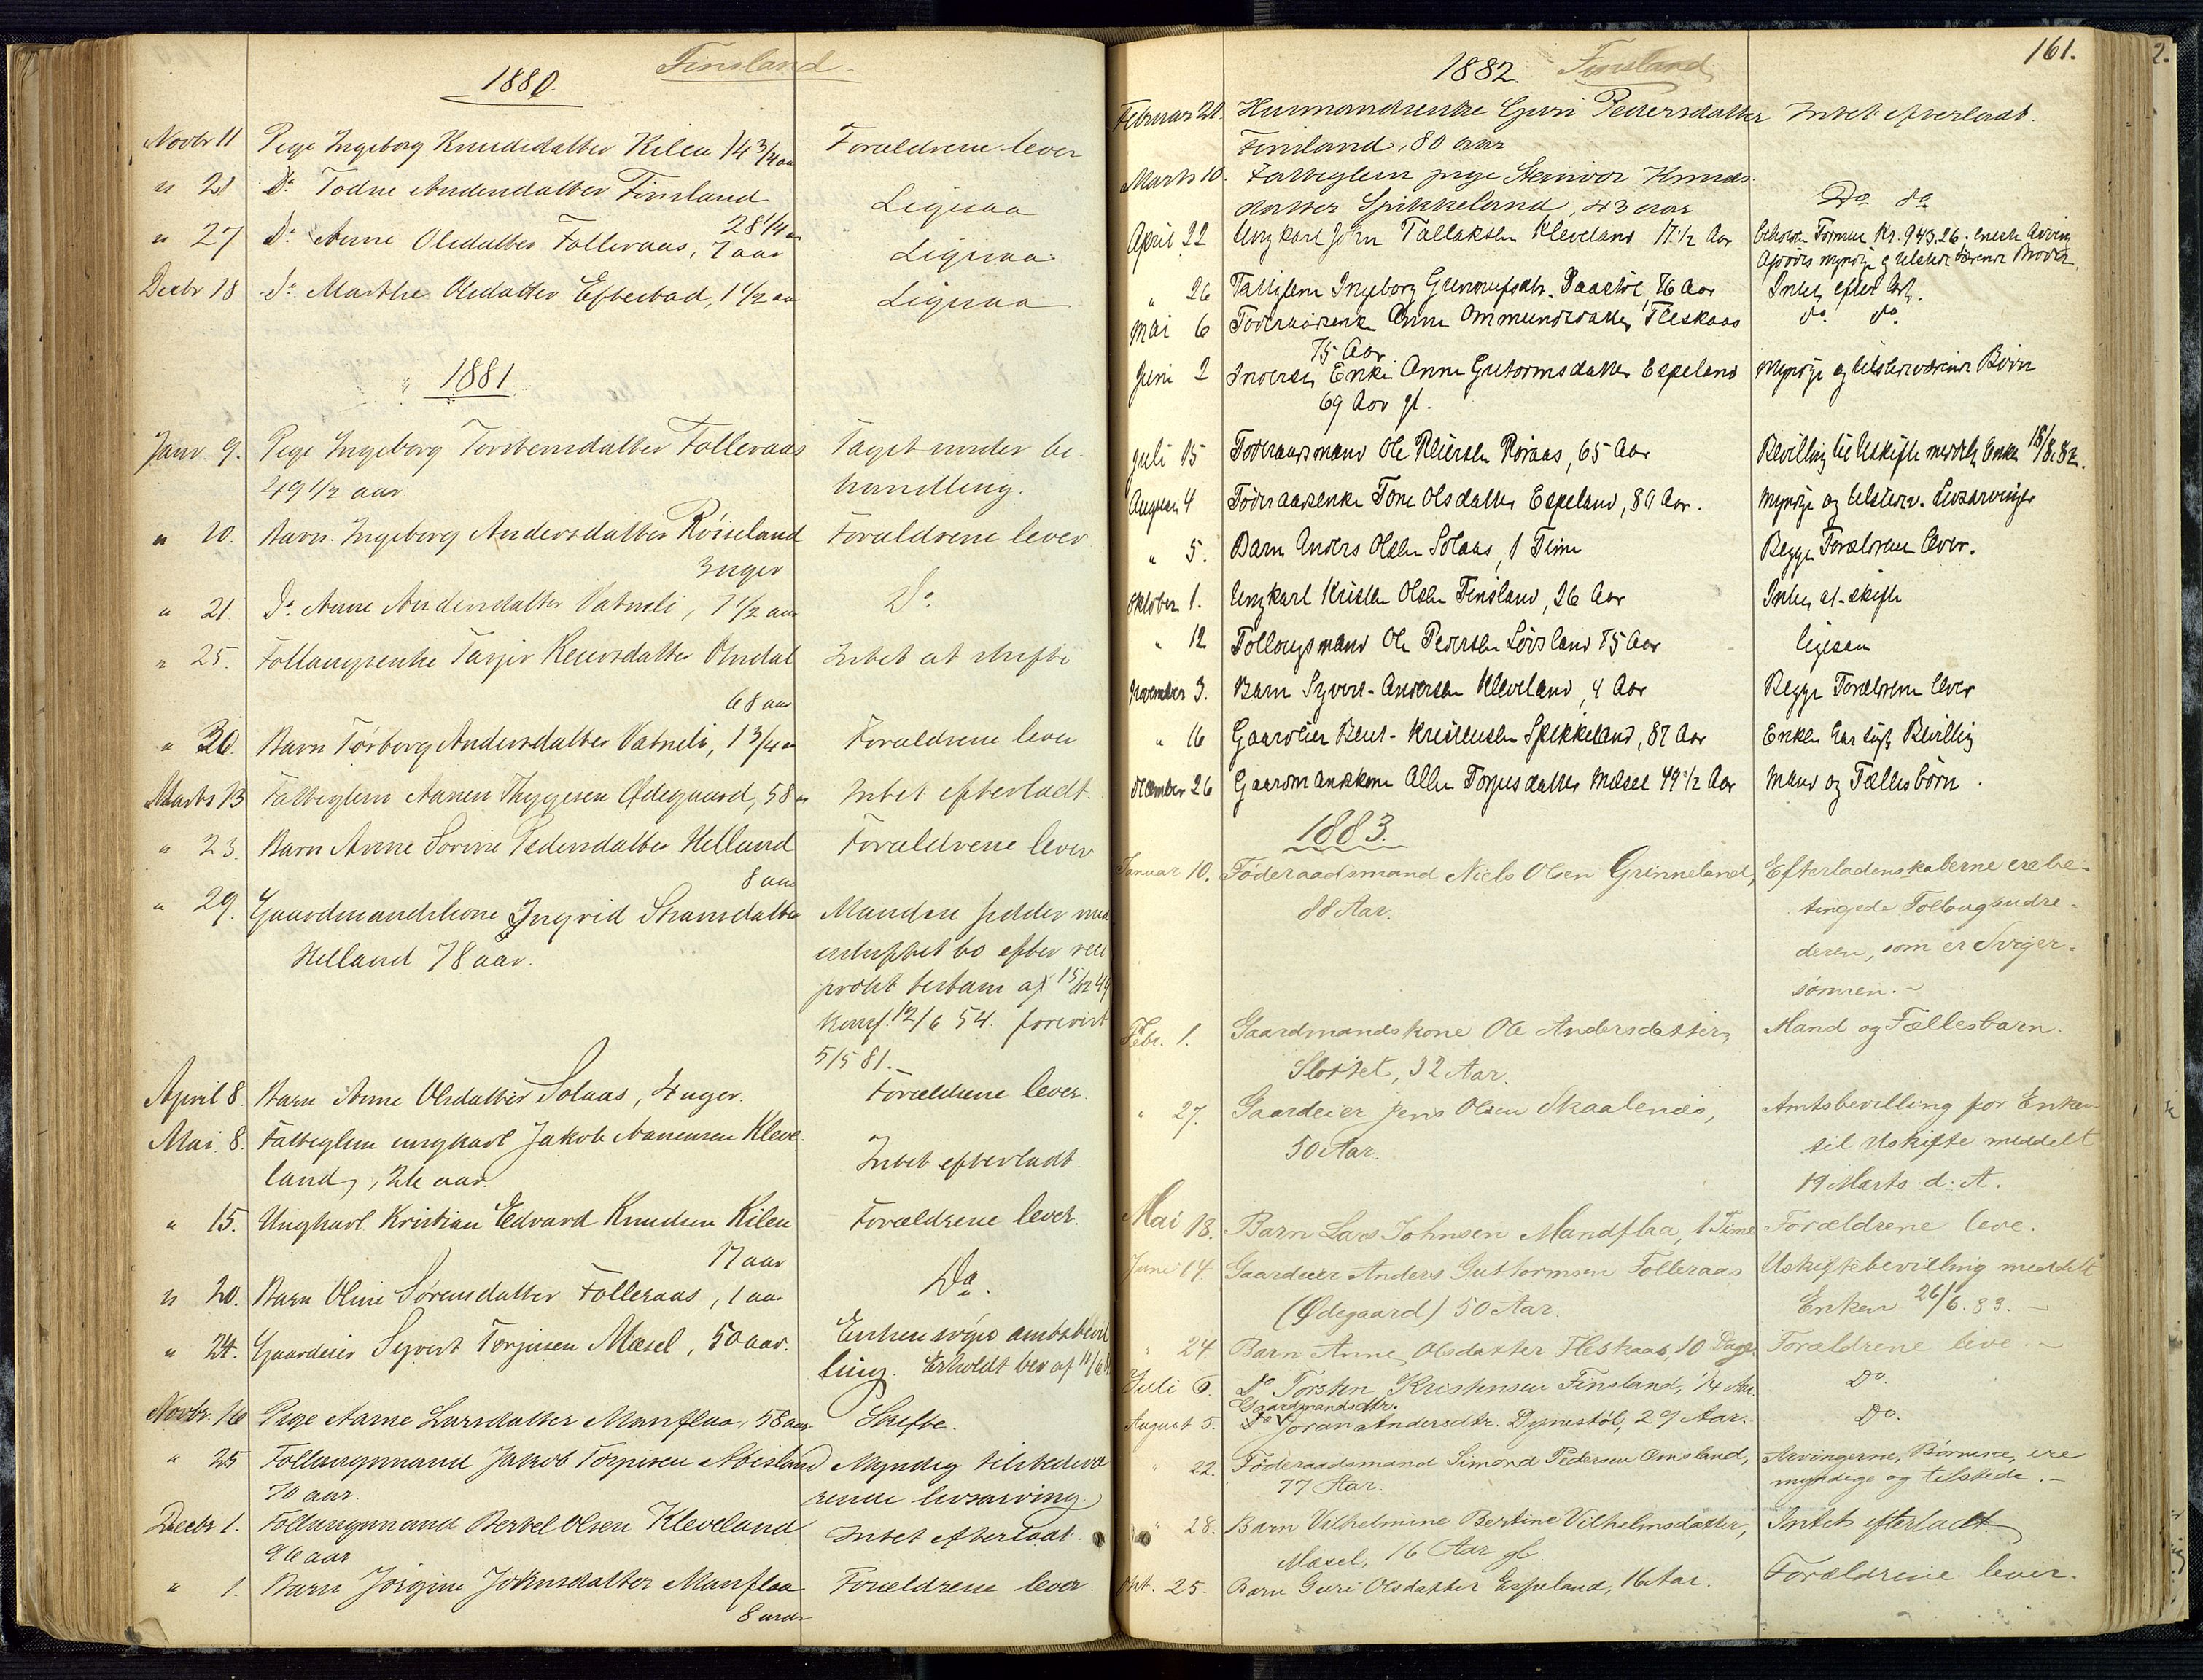 Finsland
1880.
Novbr 11 Pige Ingeborg Knudsdatter Kilen 14 3/4 aar Forældrene lever
" 21 Do Todne Andersdatter Finsland Ligesaa
28 1/4 aar
" 27 Do Anne Olsdatter Folleraas, 7 aar Ligesaa
Decbr 18 Do Marthe Olsdatter Eftestad, 1 1/2 aar Ligesaa
1881.
Janr. 9. Pige Ingeborg Torstensdatter Folleraas Taget under be-
49 1/2 aar handling.
" 10. Barn Ingeborg Andersdatter Röiseland Forældrene lever
3 uger
" 21 Do Anne Andersdatter Vatneli, 7 1/2 aar Do
" 25. Follaugsenke Tarjer Reiersdatter Omdal Intet at skifte
68 aar
" 30. Barn Torborg Andersdatter Vatneli, 1 3/4 aar Forældrene lever
Marts 13 Fattiglem Aanen Thygesen Ødegaard, 58 aar Intet efterladt.
" 23. Barn Anne Sorine Pedersdatter Helland Forældrene lever
8 aar
" 29. Gaardmandskone Ingrid Simonsdatter Manden sidder med
Helland 78 aar. uskiftet bo efter reci
prokt testam af 15/12 49
konf. 12/6 54. forevist
5/5 81.
April 8. Barn Anne Olsdatter Solaas, 4 uger. Forældrene lever.
Mai 8. Fattiglem ungkarl Jakob Aanensen Kleve-
land, 26 aar. Intet efterladt.
" 15. Ungkarl Kristian Edvard Knudsen Kilen Forældrene lever.
17 aar
" 20. Barn Oline Sörensdatter Folleraas, 1 aar Do.
" 24. Gaardeier Syvert Torjusen Mæsel, 50 aar. Enken söger amtsbevil
ling. Erholdt bev af
Novbr. 16 Pige Aarne Larsdatter Manflaa, 58 aar Skifte.
" 25 Follaugsmand Jakob Torjusen Abisland Myndig tilstedevæ
70 aar. rende livsarving
Decbr 1. Follaugsmand Bertel Olsen Kleveland Intet efterladt.
96 aar
" 1. Barn Jörgine Johnsdatter Manflaa Forældrene lever.
8 aar
161.
1882. Finsland
Februar 21. Husmandsenke Guri Pedersdatter Intet efterladt.
Finsland, 80 aar
Marts 10. Fattiglem pige Steinvor Knuds-
datter Spikkeland, 43 aar Do do
April 22 Ungkarl John Tallaksen Kleveland 17 1/2 Aar beholden Formue Kr. 943.26; eneste Arving
Afdödes myndige og tilstedeværende Broder.
" 26 Fattiglem Ingeborg Gunnufsdtr. Paastöl, 76 Aar Intet efterladt.
Mai 6 Föderaadsenke Anne Ommundsdatter Fleskaas do. do.
75 Aar
Juni 2 Inderst Enke Anne Gutormsdatter Espeland Myndige og tilstedeværende Börn
69 Aar gl.
Juli 15 Föderaadsmand Ole Reiersen Röiaas, 65 Aar Bevilling til Uskifte meddelt Enken 18/8.82.
August 4 Föderaadsenke Tone Olsdatter Espeland, 80 Aar. Myndige og tilstedev. Livsarvinger
" 5. Barn Anders Olsen Solaas, 1 Time Begge Forældrene lever.
Oktober 1. Ungkarl Kristen Olsen Finsland, 26 Aar Intet at skifte
" 12 Follougsmand Ole Pedersen Löisland 75 Aar ligesaa
November 3. Barn Syvert Andersen Kleveland, 4 Aar Begge Forældrene lever
" 16 Gaardeier Bent Kristensen Spikkeland, 87 Aar Enken har sögt Bevilling
December 26 Gaardmandskone Alle Torjusdatter Mæsel 49 1/2 Aar Mand og Fællesbörn.
1883.
Januar 10. Föderaadsmand Niels Olsen Grinneland, Efterladenskaberne ere be-
88 Aar. tingede Follaugsudre-
deren, som er Sviger-
sönnen.
Febr. 1. Gaardmandskone Ole Andersdatter Mand og Fællesbarn.
Slottet, 32 Aar.
" 27. Gaardeier Jens Olsen Skaalenæs, Amtsbevilling for Enken
50 Aar. til Uskifte meddelt
19 Marts d. A.
Mai 18. Barn Lars Johnsen Mandflaa, 1 Time Forældrene leve.
Juni 14 Gaardeier Anders Guttormsen Folleraas Uskiftebevilling meddelt
(Ødegaard) 50 Aar. Enken 26/6.83.
" 24. Barn Anne Olsdatter Fleskaas, 10 Dage Forældrene leve.
Juli 6. Do Torsten Kristensen Finsland, 1/4 Aar. Do
Gaardmandsdtr.
August 5. Do Joran Andersdtr. Dynestöl, 29 Aar. Do.
" 22. Föderaadsmand Simond Pedersen Omsland, Arvingerne, Börnene, ere
77 Aar. myndige og tilstede.
" 28. Barn Vilhelmine Bertine Vilhelmsdatter, Intet efterladt
Mæsel, 16 Aar gl.
Okt. 25. Barn Guri Olsdatter Espeland, 16 Aar. Forældrene lever.